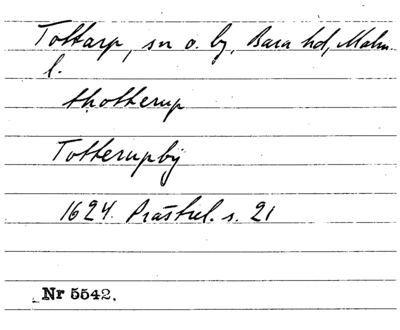 Tottarp, sn o. by, Bara hd, Malm.
l.
thotterup
Totterupby
1624. Prästrel. s. 21
Nr 5542.